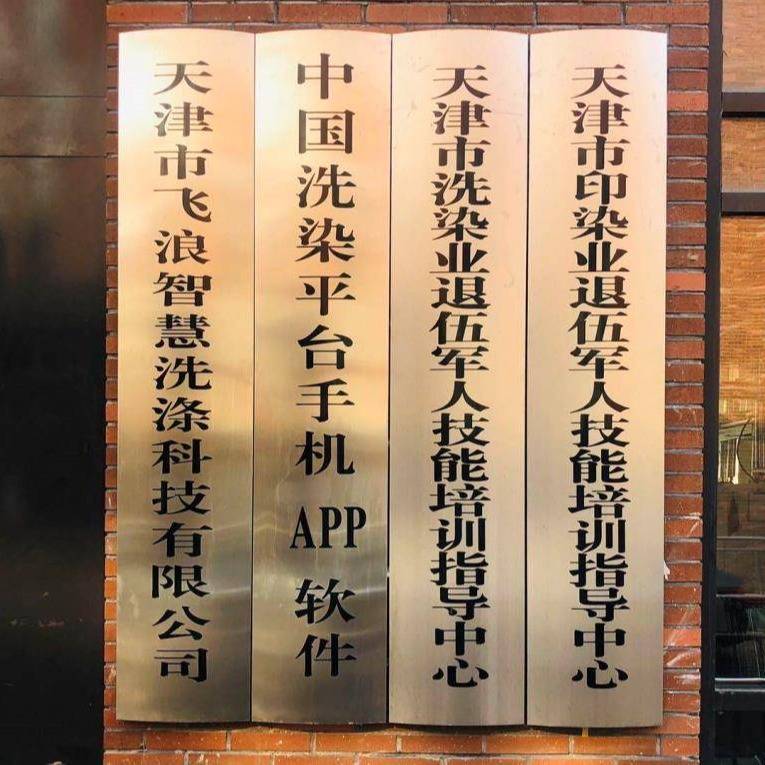 天津市飞浪智慧洗涤科技有限公司
中国洗染平台手机APP软件
天津市洗染业退伍军人技能培训指导中心
天津市印染业退伍军人技能培训指导中心